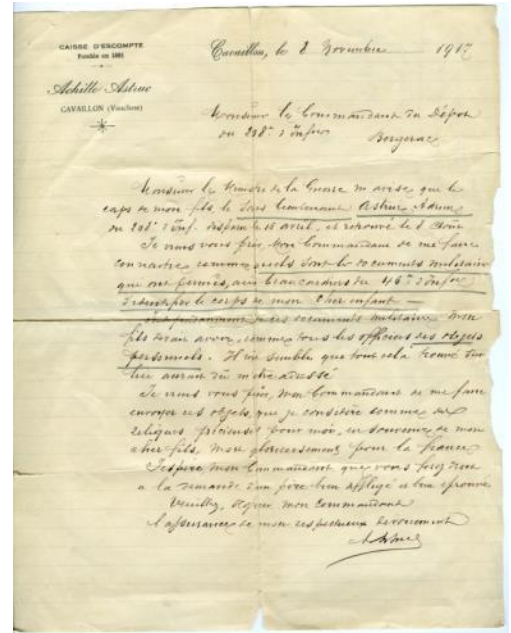 CAISSE D'ESCOMPTE
Fondée en 1881
Achille Astruc
CAVAILLON (Vaucluse)
Cavaillon, le 8 Novembre 1917
Monsieur le Commandant du Dépôt
du 208e d'Infrie
Bergerac
Monsieur le Ministre de la Guerre m'avise que le
corps de mon fils, le sous lieutenant Astruc Adrien
du 208e d'Inf. disparu le 16 avril, est retrouvé le 8 Août
Je viens vous prier, mon Commandant de me faire
connaître quels sont les documents militaires
que ont permis, aux brancardiers du 46e d'Infrie
d'identifier le corps de mon cher enfant —
ces documents militaires mon
fils devait avoir, comme tous les officiers ses objets
personnels. Il me semble que tout cela trouvé sur
lui aurait dû m'être adressé
Je viens vous prier, mon Commandant de me faire
envoyer ces objets, que je considère comme des
reliques précieuses pour moi, en souvenir de mon
cher fils, mort glorieusement pour la France
J'espère mon Commandant que vous ferez droit
à la demande d'un père bien affligé et bien éprouvé
Veuillez, agréer mon commandant
l'assurance de mon respectueux dévouement